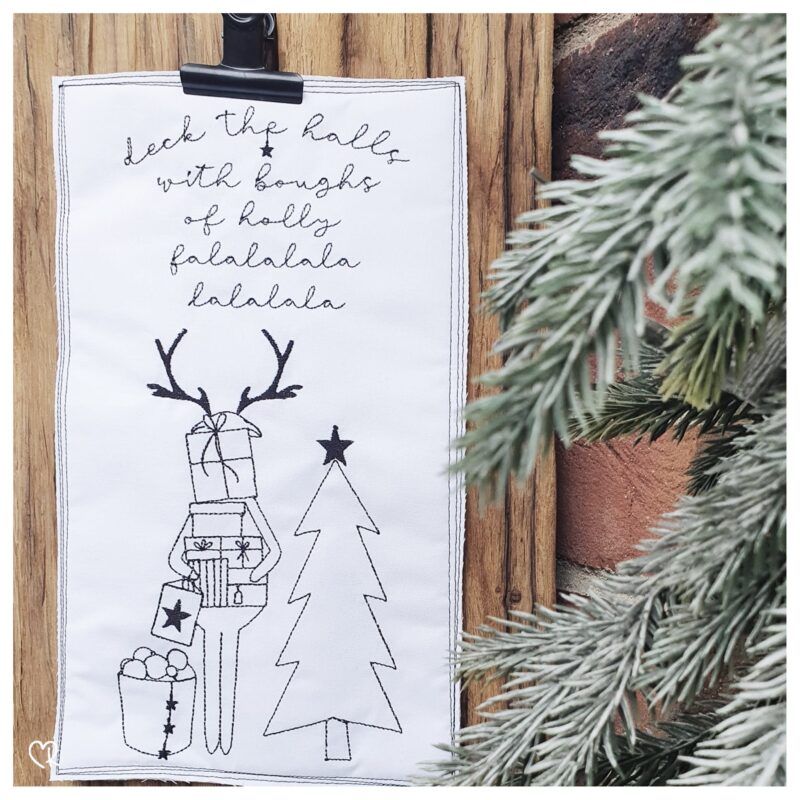 deck the halls
with boughs
of holly
falalalala
lalalala